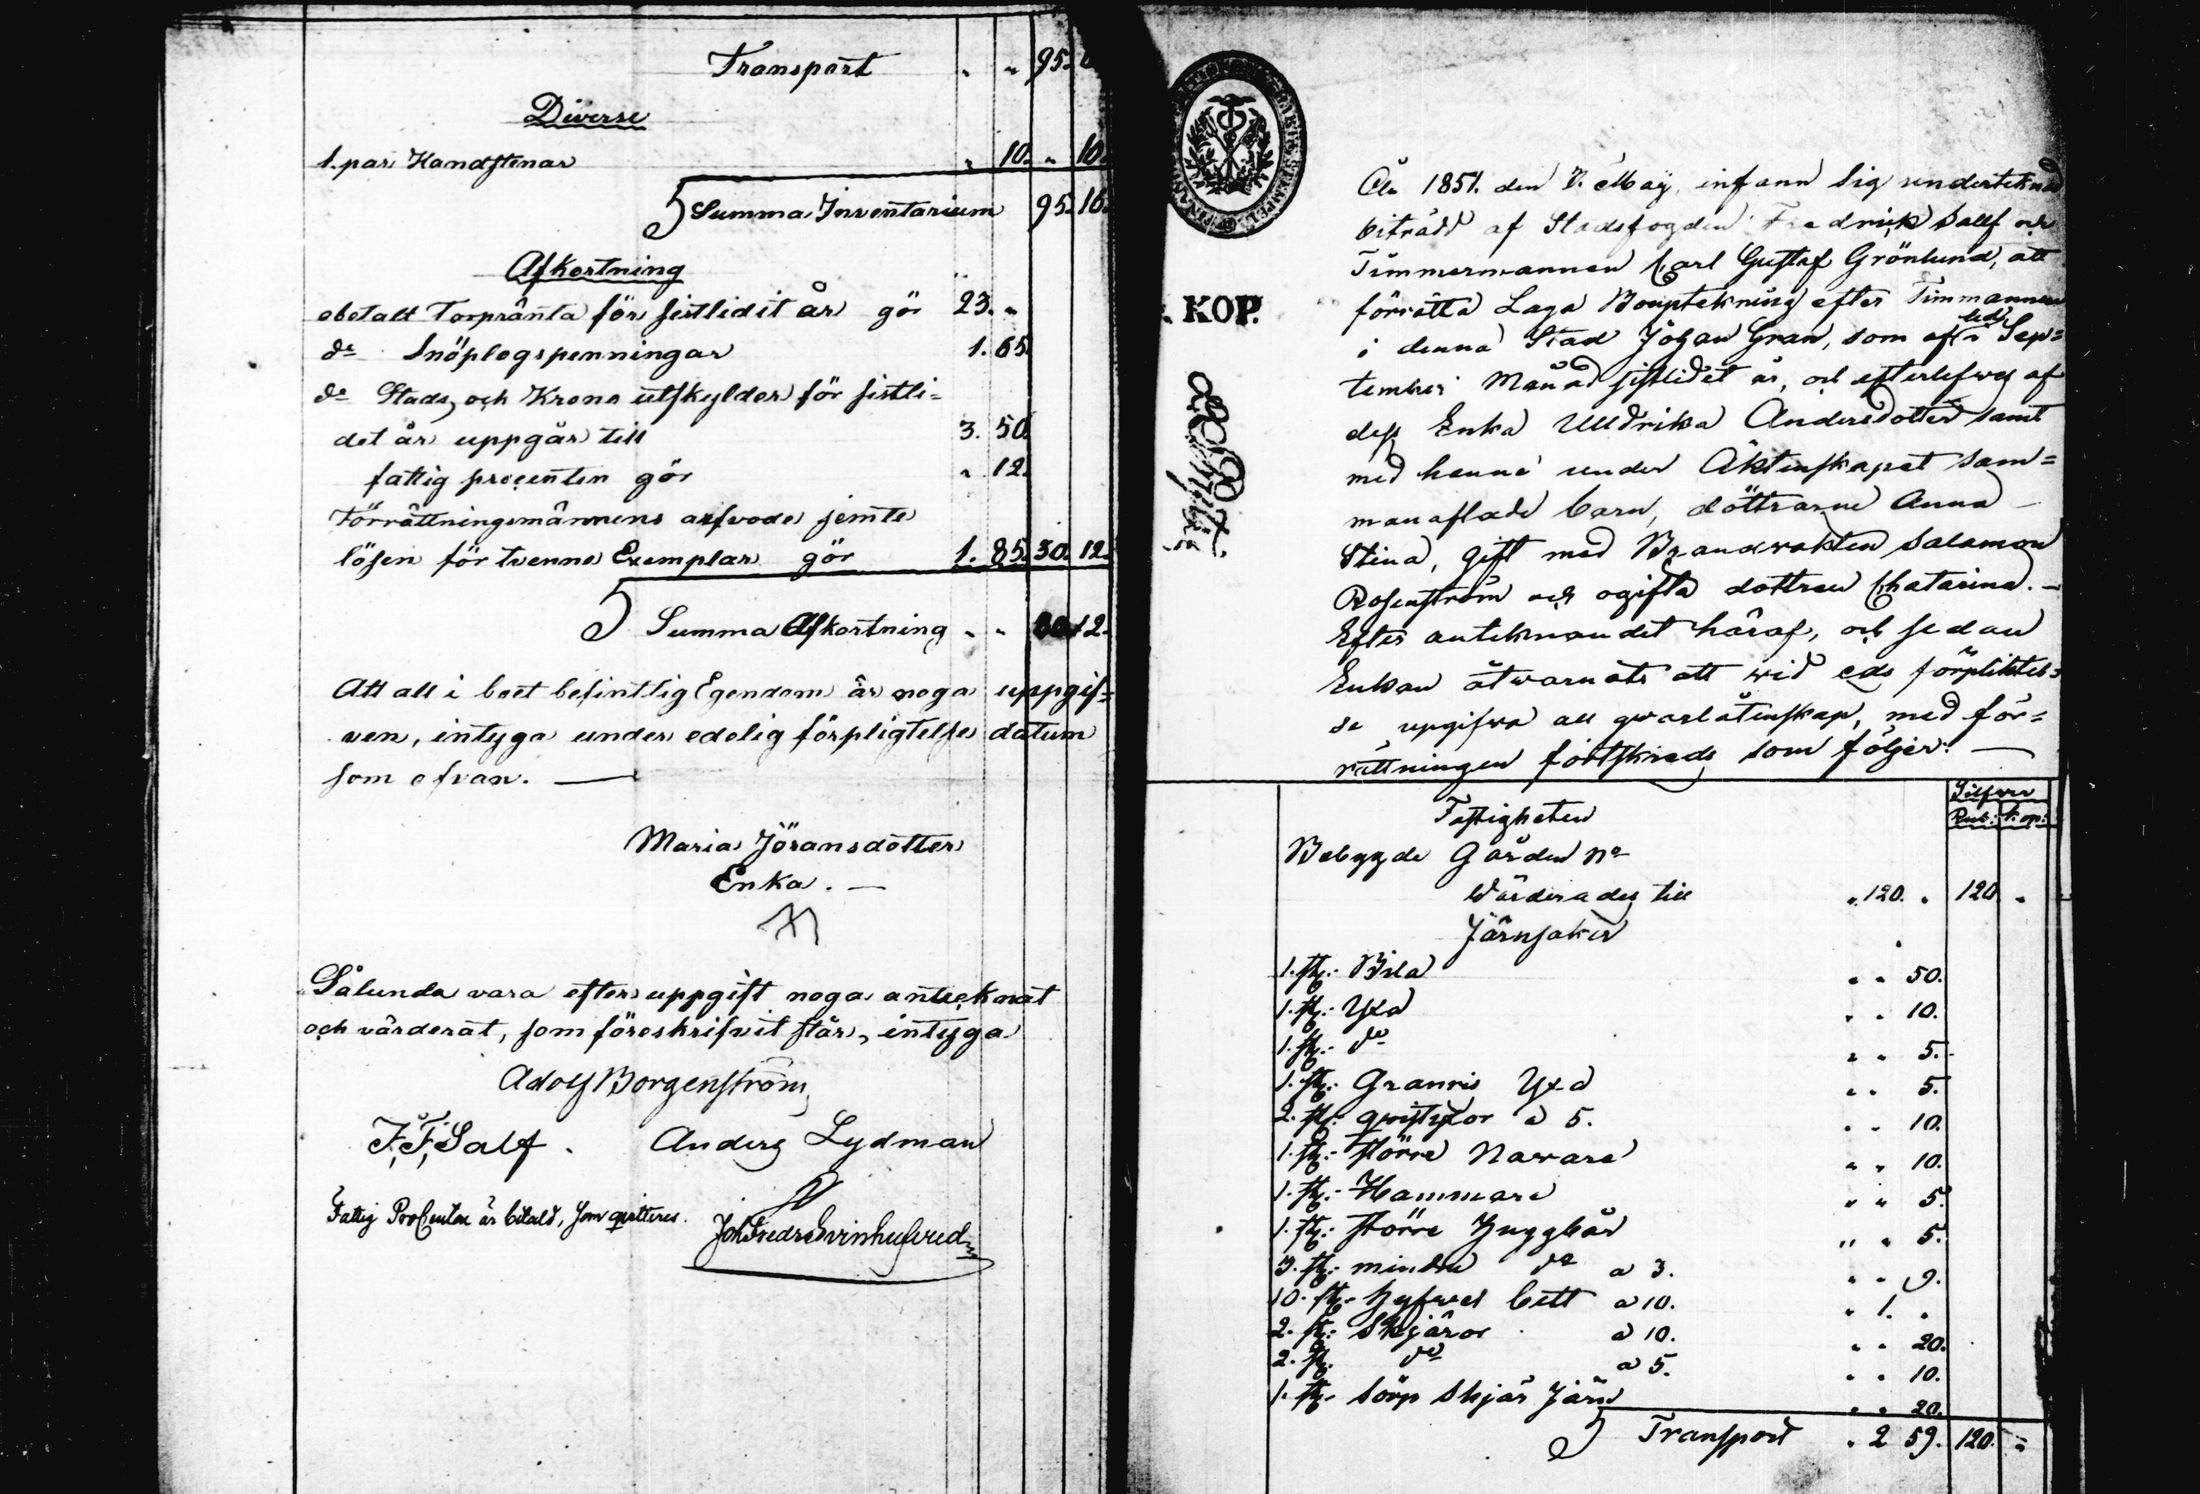 Transport " " 95.
Diverse
1. par Handstenar " 10. " 10.
Summa Inventarium 95. 16.
Afkortning
obetalt Torpränta för sistlidit år gör 23. "
do Snöplogspenningar 1. 65.
do Stads och Krono utskylder för sistli=
det år uppgår till 3. 50.
fattig procenten gör " 12.
Förrättningsmännens arfvode jemte
lösen för tvenne Exemplar gör 1. 85. 30. 12.
Summa Afkortning " " 30 12.
Att all i boet befintlig Egendom är noga uppgif=
ven, intyga under edelig förpligtelse datum
som ofvan. —
Maria Jöransdotter
Enka. —
Sålunda vara efter uppgift noga antecknat
och värderat, som föreskrifvit står, intyga
Adolf Borgenström
F. F. Salf. Anders Lydman
Fattig ProCenten är betald, som quitteras.
Joh Fredr Svinhufvud
KOP.
År 1851. den 7. Maij, infann sig underteknad
biträdd af Stadsfogden Fredrick Sallf och
Timmermannen Carl Gustaf Grönlund, att
förrätta Laga Bouptekning efter Timmannen
i denna Stad Johan Gran, som afled i Sep=
tember Månad sistlidet år, och efterlefwes af
dess Enka Ulldrika Andersdotter samt
med henne under Äktenskapet sam=
manaflade barn, döttrarne Anna
Stina, gift med Brandwakten Salamon
Rosenström och ogifta dottren Chatarina. —
Efter anteknandet häraf, och sedan
Enkan åtwarnats att wid eds förpliktel=
se upgifwa all qwarlåtenskap, med för=
rättningen fortskreds som följer: —
Silfwer
Fastigheten Rub: Kop:
Bebygde Gården No
Wärderades till " 120. " 120 "
Järnsaker
1. st: Bila " " 50.
1. st: Yxa " " 10.
1. st: do " " 5.
1. st: Granris Yxa " " 5.
2. st: qwistyxor a 5. " " 10.
1. st: större Naware " " 10.
1. st: Hammare " " 5.
1. st: större Huggbår " " 5.
3. st: mindre do a 3. " " 9.
10. st: hyfwel bett a 10. " 1. "
2. st: Skjäror a 10. " " 20.
2. st: do a 5. " " 10.
1. st: Sörp Skjär Järn " " 20.
Transport " 2 59. 120. "